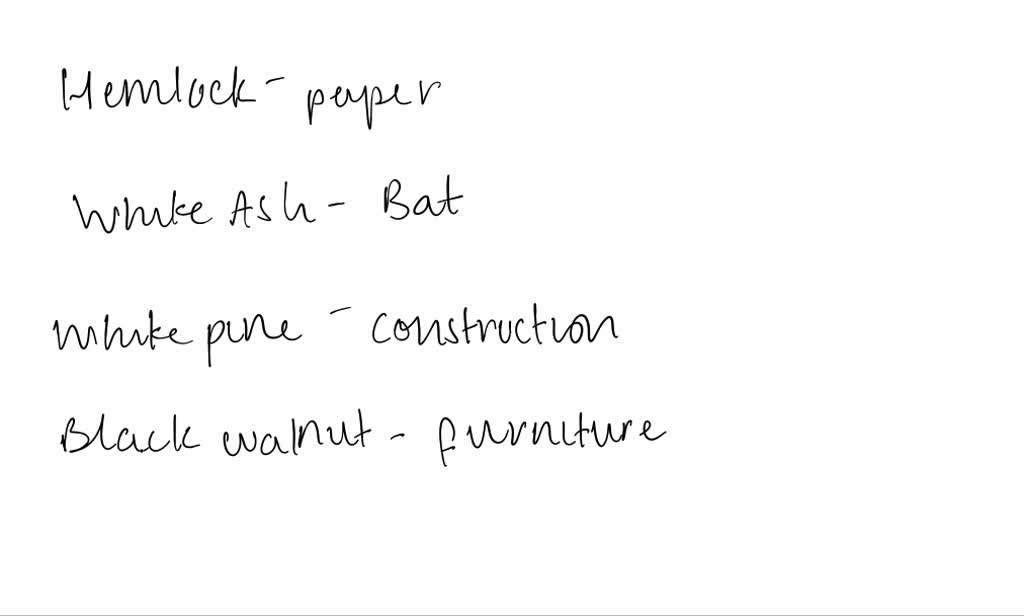 Hemlock - paper
White Ash - Bat
White pine - construction
Black walnut - furniture